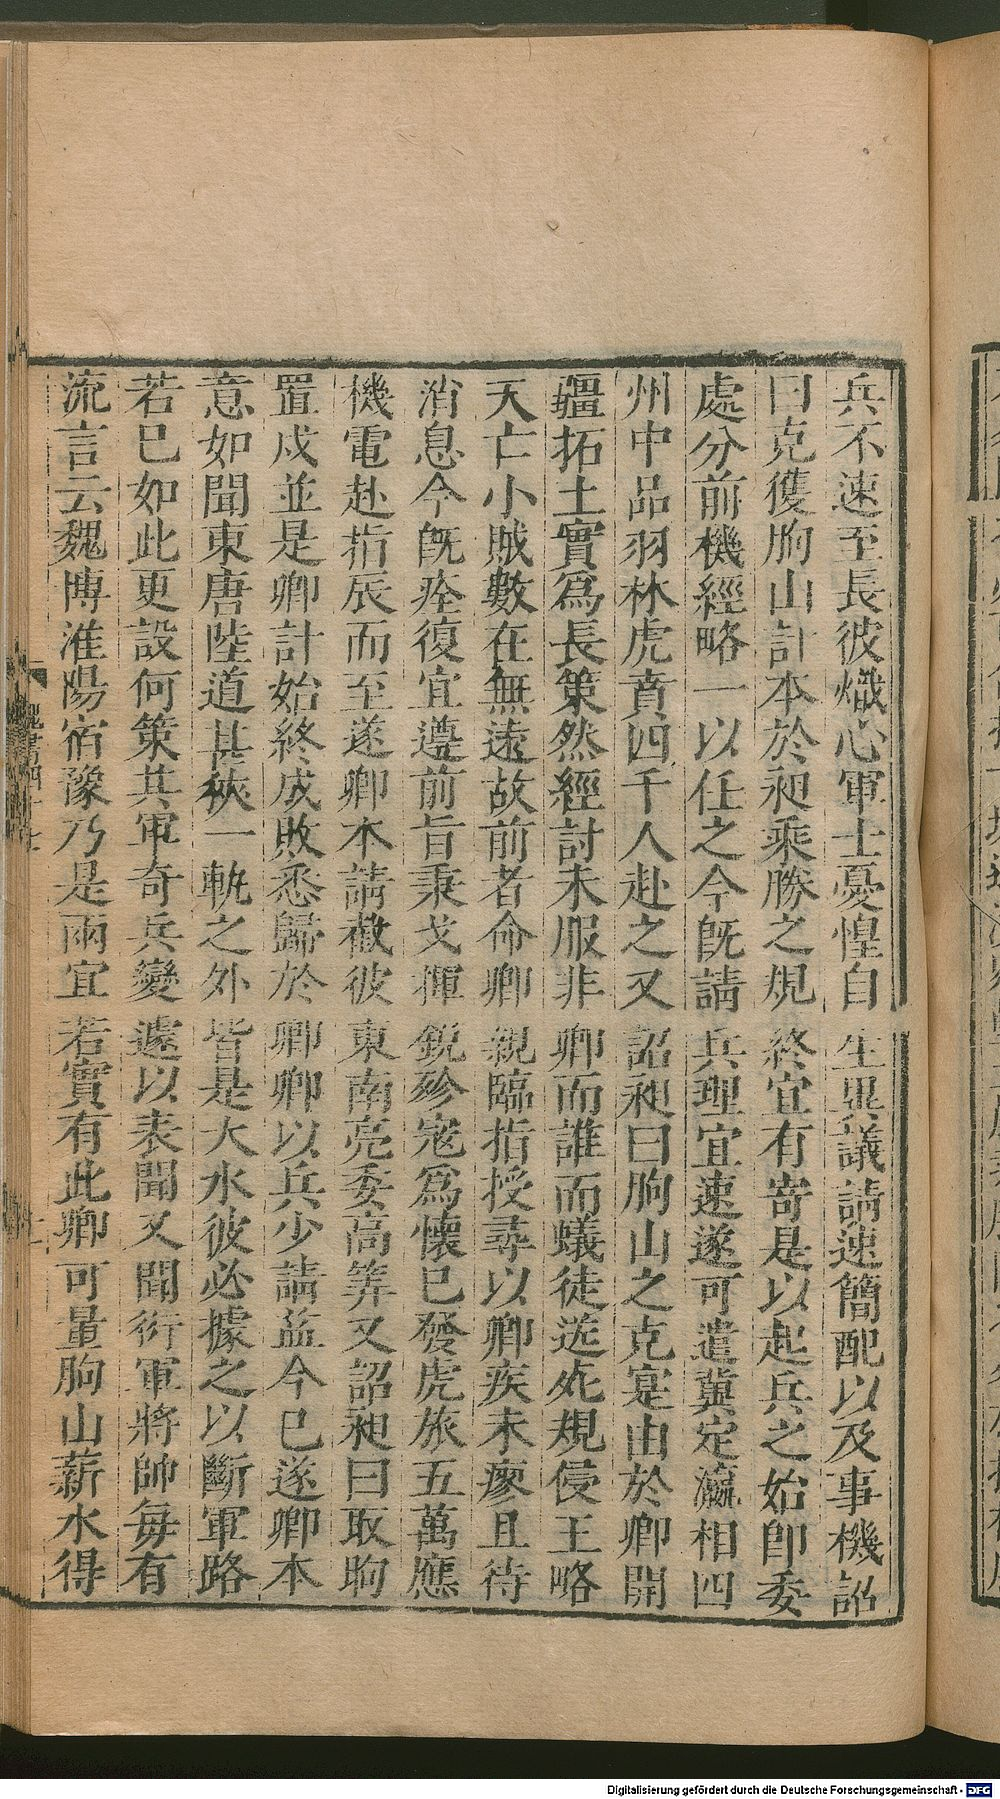 兵不速至長彼熾心軍士憂惶自生異議請速簡配以及事機詔
曰克獲朐山計本於昶乘勝之規終宜有寄是以起兵之始卽委
處分前機經略一以任之今旣請兵理宜速遂可遣冀定瀛相四
州中品羽林虎賁四千人赴之又詔昶曰朐山之克寔由於卿開
疆拓土實爲長策然經討未服非卿而誰而蟻徒送死規侵王略
天亡小賊數在無遠故前者命卿親臨指授尋以卿疾未瘳且待
消息今旣痊復宜遵前旨秉戈揮銳殄寇爲懷已發虎旅五萬應
機電赴指辰而至遂卿本請截彼東南亮委高筭又詔昶曰取朐
置戍並是卿計始終成敗悉歸於卿卿以兵少請益今已遂卿本
意如聞東唐陸道甚狹一軌之外皆是大水彼必據之以斷軍路
若已如此更設何策其軍奇兵變遽以表聞又聞衍軍將帥每有
流言云魏博淮陽宿豫乃是兩宜若實有此卿可量朐山薪水得
魏書四十七
Digitalisierung gefördert durch die Deutsche Forschungsgemeinschaft - DFG